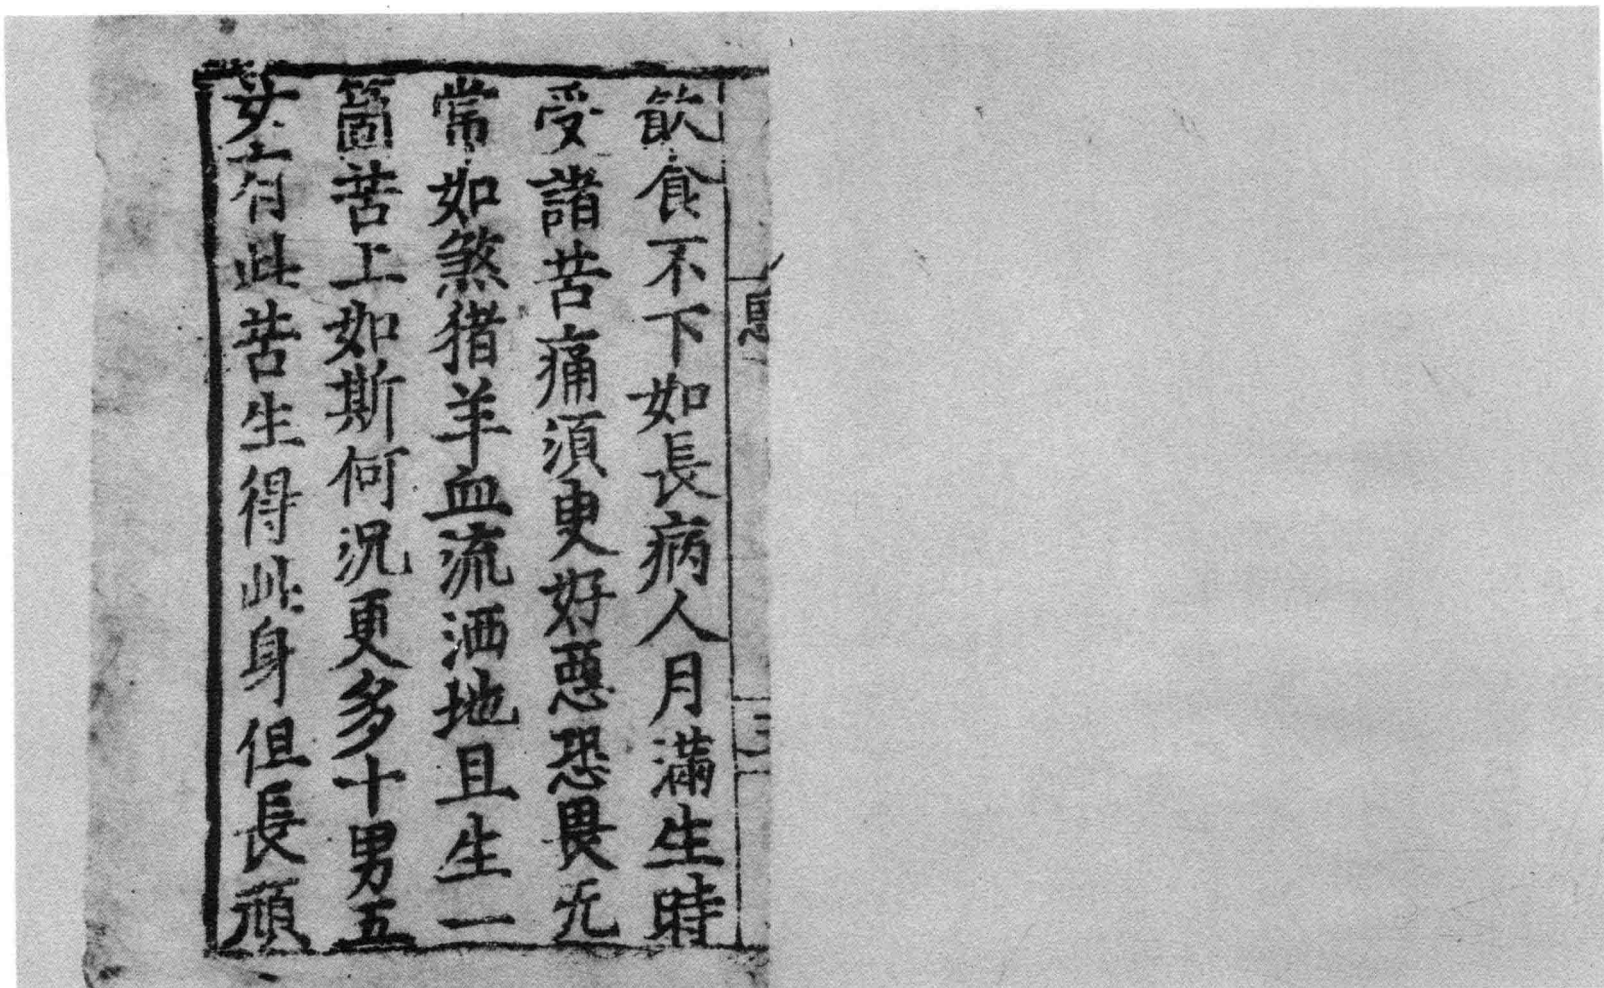 恩
三
飲食不下如長病人月滿生時
受諸苦痛湏臾好惡恐畏无
常如煞猪羊血流洒地且生一
箇苦上如斯何況更多十男五
女亠有此苦生得此身但長頑